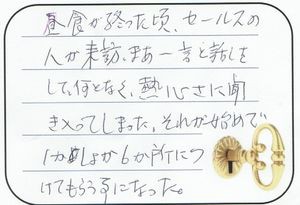 昼食が終った頃、セールスの
人が来訪、まあ一言と話しを
して、何となく、熱心さに聞
き入ってしまった、それが始めで
1か所が6か所につ
けてもらう事になった。